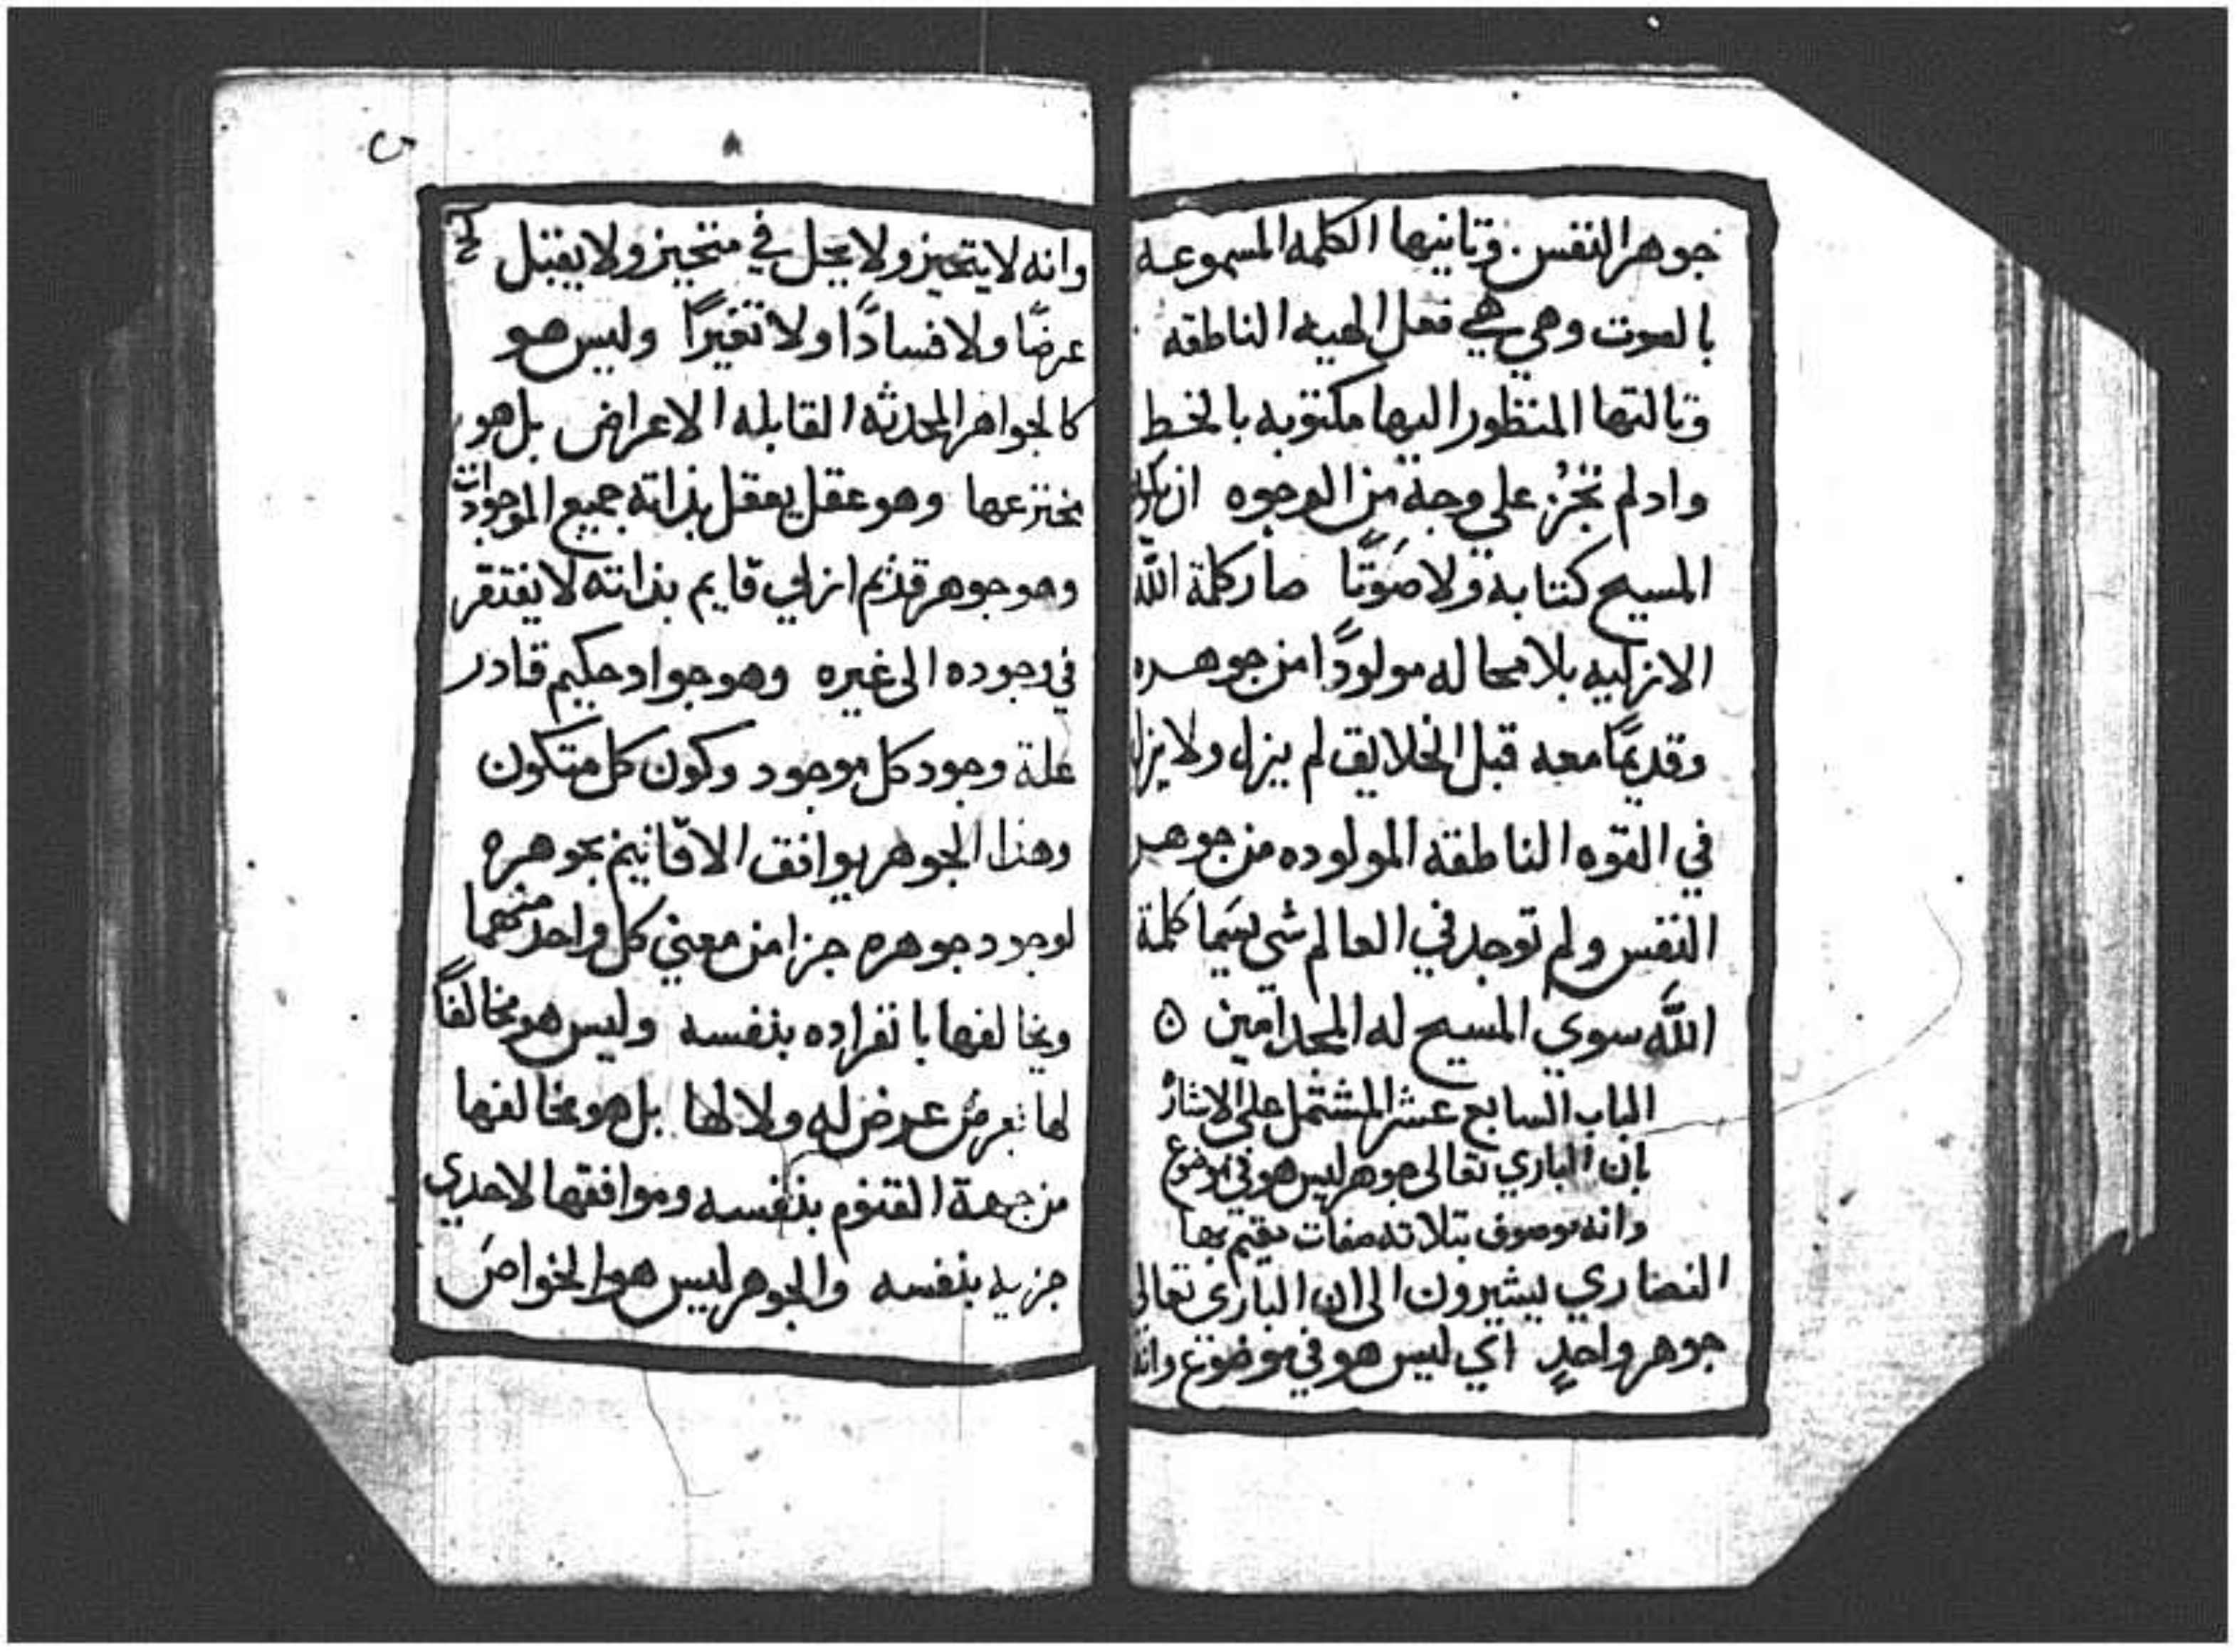 جوهر النفس. وتانيها الكلمه المسموعه
بالصوت وهي هي فعل الحيه الناطقه
وتالتها المنظور اليها مكتوبه بالخط
وادلم تجُز علي وجهٍ من الوجوه ان يكون
المسيح كتابه ولا صَوتًا صار كلمة اللّه
الازليه بلا محاله مولودًا من جوهره
وقديمًا معه قبل الخلايق لم يزل ولا يزل
في القوه الناطقه المولوده من جوهر
النفس ولم توجد في العالم شي يسَما كلمة
اللّه سوي المسيح له المجد امين ن
الباب السابع عشر المشتمل علي الاشارُه
بان الباري تعالى جوهر ليس هو في موضوع
وانه موصوف بتلاته صفات يقيم بها
النصاري يشيرون الى ان الباري تعالى
جوهر واحدٍ اي ليس هو في موضوع وانه
وانه لا يتحيز ولا يحل في متحيز ولا يقبل
عرضًا ولا فسادًا ولا تغيرًا وليس هو
كالجواهر المحدثه القابله الاعراض بل هو
مخترعها وهو عقل يعقل بذاته جميع الموجودات
وهو جوهر قديم ازلي قايم بذاته لا يفتقر
في وجوده الى غيره وهو جواد حكيم قادر
علة وجود كل موجود وكون كل متكون
وهذا الجوهر يوافق الاقانيم بجوهره
لوجود جوهره جزا من معني كل واحد منهما
ويخالفها بانفراده بنفسه وليس هو مخالفًا
لها بعرض عرض له ولا لها بل هو مخالفها
من جهة القنوم بنفسه وموافقها لاحدي
جزيه بنفسه والجوهر ليس هو الخواصَ